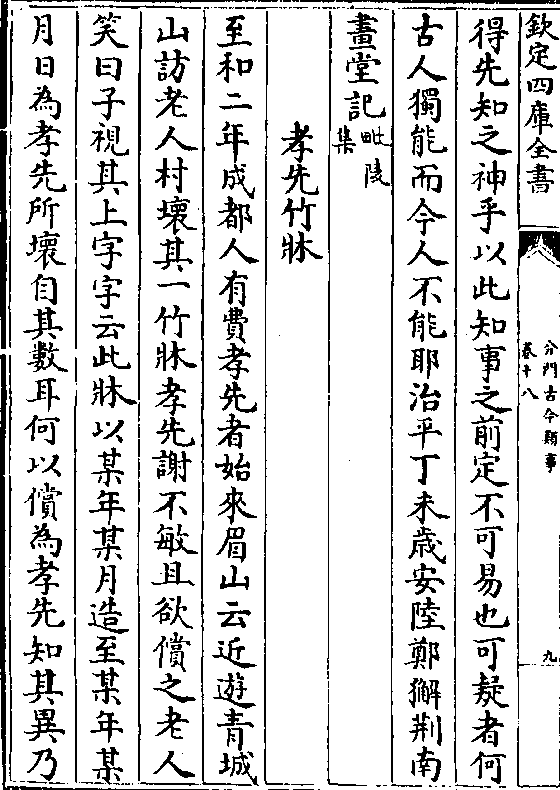 欽定四庫全書
分門古今類事
卷十八
九
得先知之神乎以此知事之前定不可易也可疑者何
古人獨能而今人不能耶治平丁未歲安陸鄭獬荆南
畫堂記毗陵集
孝先竹牀
至和二年成都人有費孝先者始來眉山云近遊青城
山訪老人村壞其一竹牀孝先謝不敏且欲償之老人
笑曰子視其上字字云此牀以某年某月造至某年某
月日為孝先所壞自其數耳何以償為孝先知其異乃